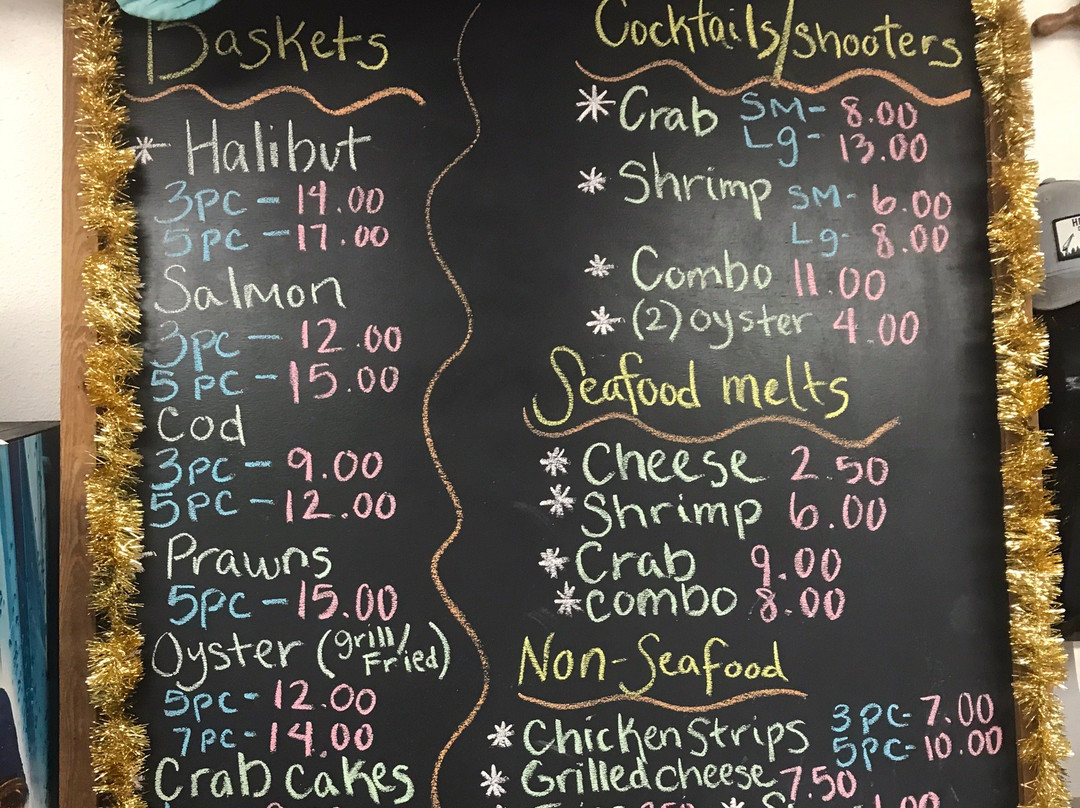 Baskets
* Halibut
3pc - 14.00
5pc - 17.00
Salmon
3pc - 12.00
5pc - 15.00
Cod
3pc - 9.00
5pc - 12.00
- Prawns
5pc - 15.00
Oyster (grill/Fried)
5pc - 12.00
7pc - 14.00
Crab cakes
Cocktails/shooters
* Crab SM- 8.00
Lg- 13.00
* Shrimp SM- 6.00
Lg- 8.00
* Combo 11.00
* (2) oyster 4.00
Seafood melts
* Cheese 2.50
* Shrimp 6.00
* Crab 9.00
* combo 8.00
Non-Seafood
* Chicken Strips 3pc- 7.00
5pc- 10.00
* Grilled cheese 7.50